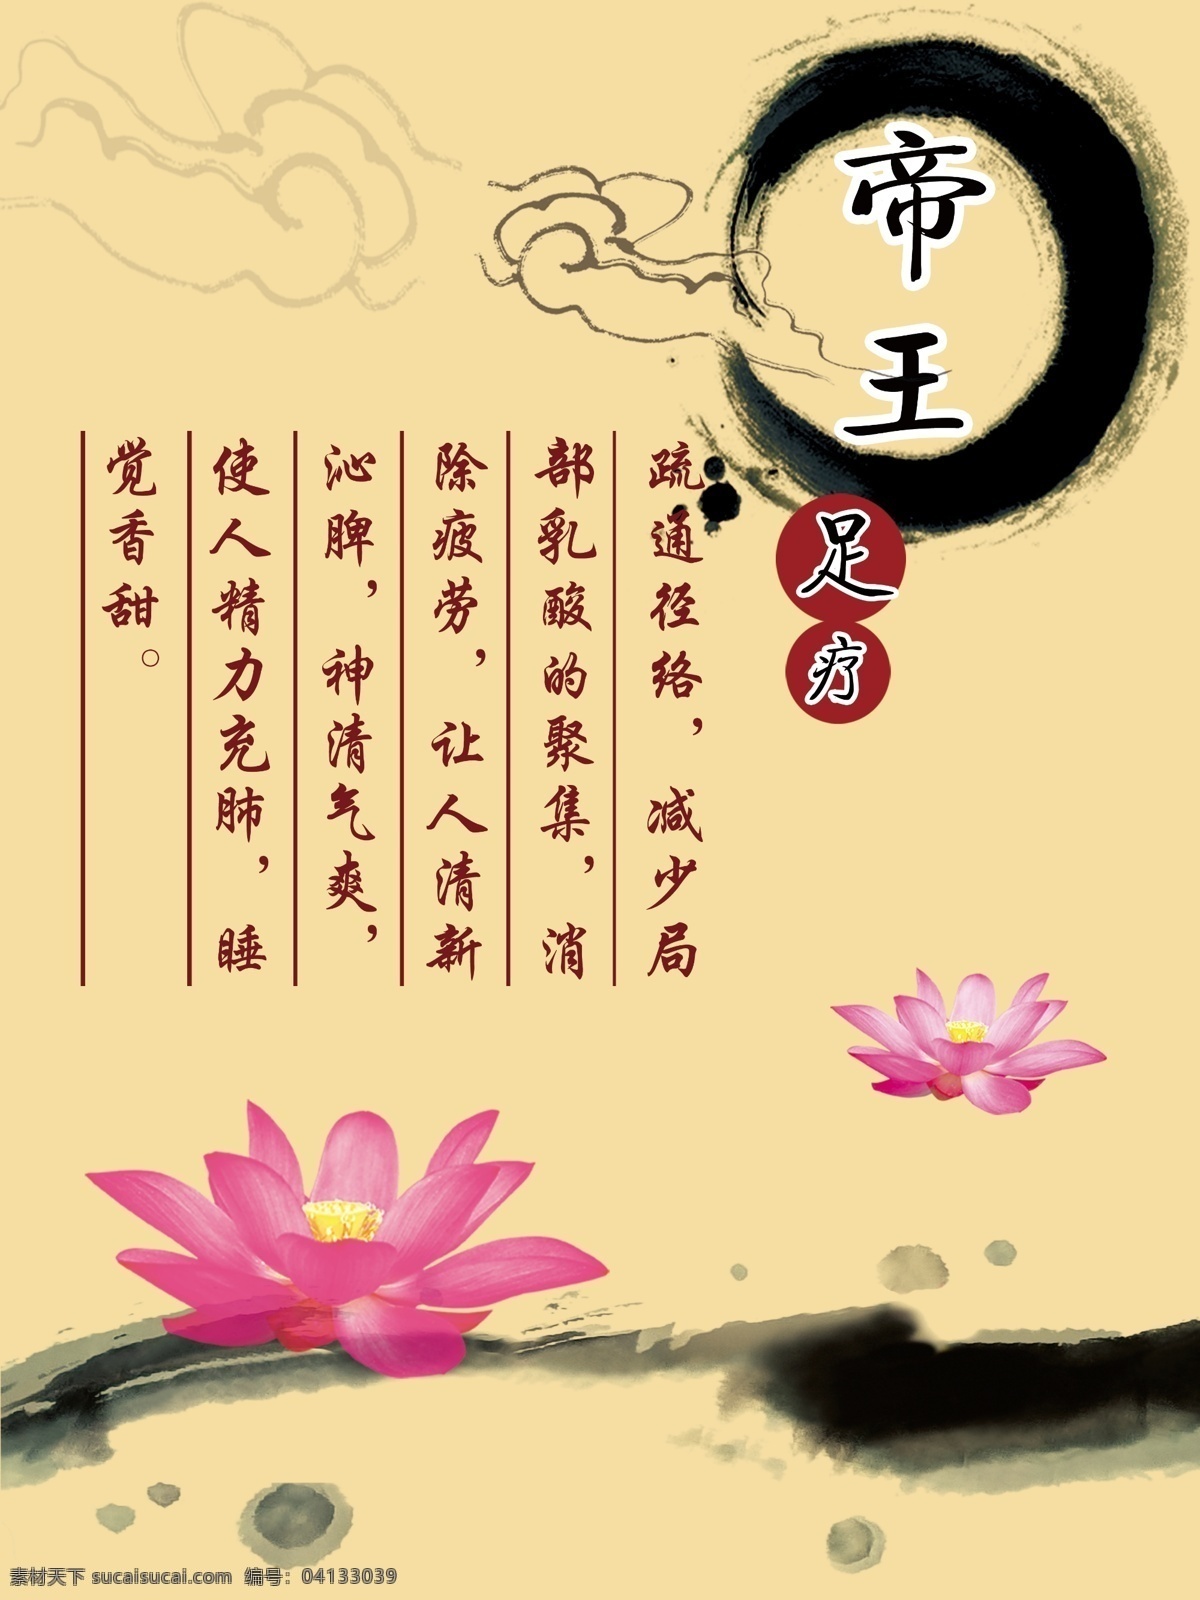 帝王
足疗
疏通径络，减少局
部乳酸的聚集，消
除疲劳，让人清新
沁脾，神清气爽，
使人精力充肺，睡
觉香甜。
素材天下 sucaisucai.com 编号：04133039